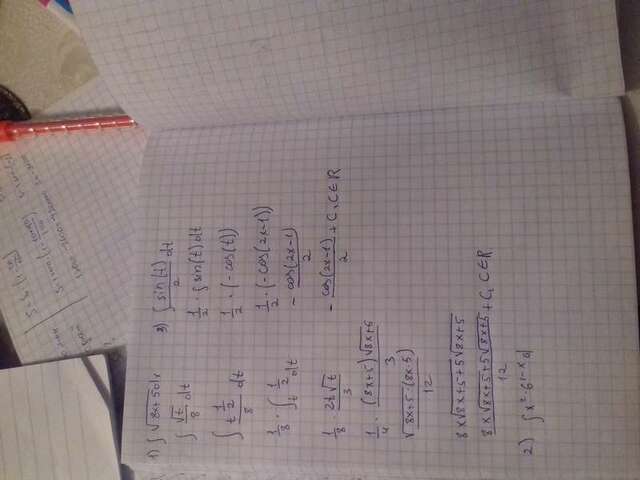 1) ∫ √(8x+5) dx
∫ √t/8 dt
∫ t^(1/2)/8 dt
1/8 · ∫ t^(1/2) dt
1/8 · 2t√t/3
1/4 · (8x+5)√(8x+5)/3
√(8x+5)·(8x+5)/12
8x√(8x+5)+5√(8x+5)
8x√(8x+5)+5√(8x+5)/12 + C, C∈R
2) ∫ x²·6^(1-x) d
3) ∫ sin(t)/2 dt
1/2 · ∫ sin(t) dt
1/2 · (-cos(t))
1/2 · (-cos(2x-1))
- cos(2x-1)/2
- cos(2x-1)/2 + C, C∈R